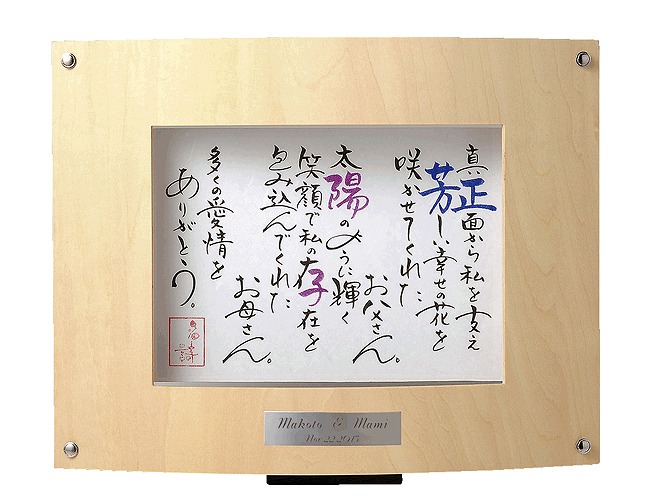 真正面から私を支え
芳しい幸せの花を
咲かせてくれた
お父さん。
太陽のように輝く
笑顔で私の存在を
包み込んでくれた
お母さん。
多くの愛情を
ありがとう。
Makoto & Mami
Nov 22 2017